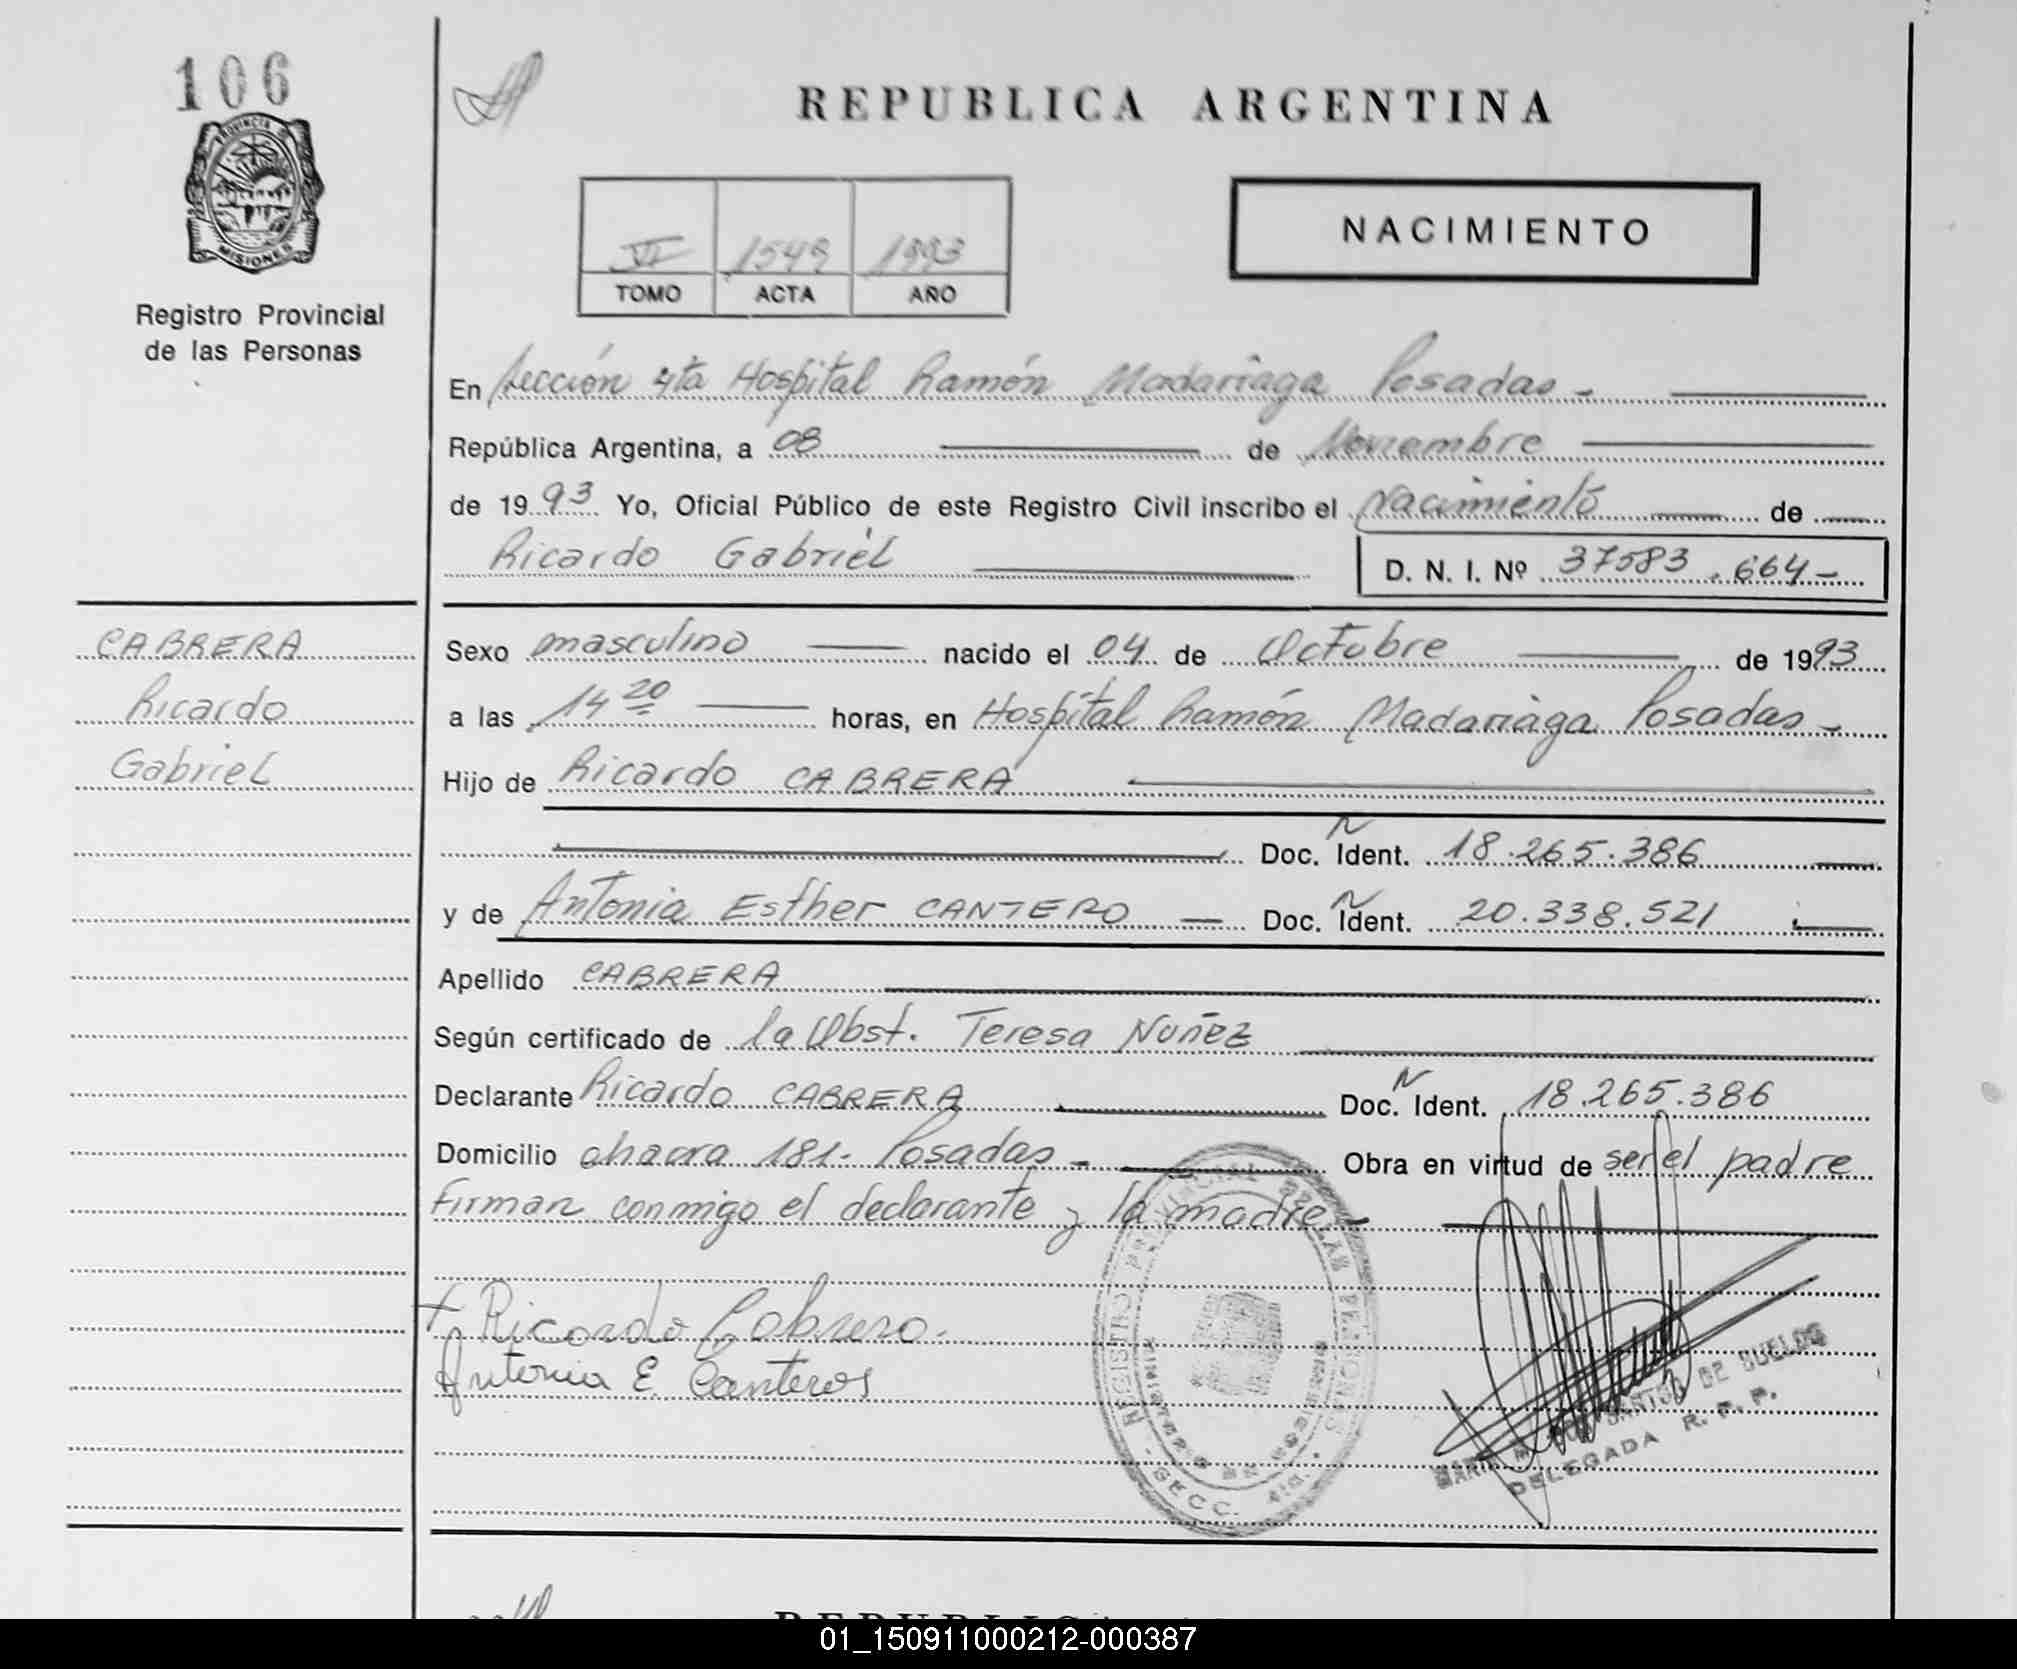 106
REPUBLICA ARGENTINA
PROVINCIA DE
MISIONES
Registro Provincial
de las Personas
VI 1549 1993
TOMO ACTA AÑO
NACIMIENTO
En Sección 4ta Hospital Ramón Madariaga Posadas -
República Argentina, a 08 de Noviembre
de 1993 Yo, Oficial Público de este Registro Civil inscribo el Nacimiento de
Ricardo Gabriel D. N. I. Nº 37583.664-
CABRERA
Ricardo
Gabriel
Sexo masculino nacido el 04 de Octubre de 1993
a las 14 20 horas, en Hospital Ramón Madariaga Posadas -
Hijo de Ricardo CABRERA
Doc. Ident. 18.265.386
y de Antonia Esther CANTERO Doc. Ident. 20.338.521
Apellido CABRERA
Según certificado de la Obst. Teresa Nuñez
Declarante Ricardo CABRERA Doc. Ident. 18.265.386
Domicilio chacra 181- Posadas - Obra en virtud de ser el padre
Firman conmigo el declarante y la madre -
+ Ricardo Cabrera.
Antonia E. Canteros
REGISTRO PROVINCIAL DE LAS PERSONAS
SECC. 4ta.
DE SUELDO
DELEGADA R. P. P.
01_150911000212-000387